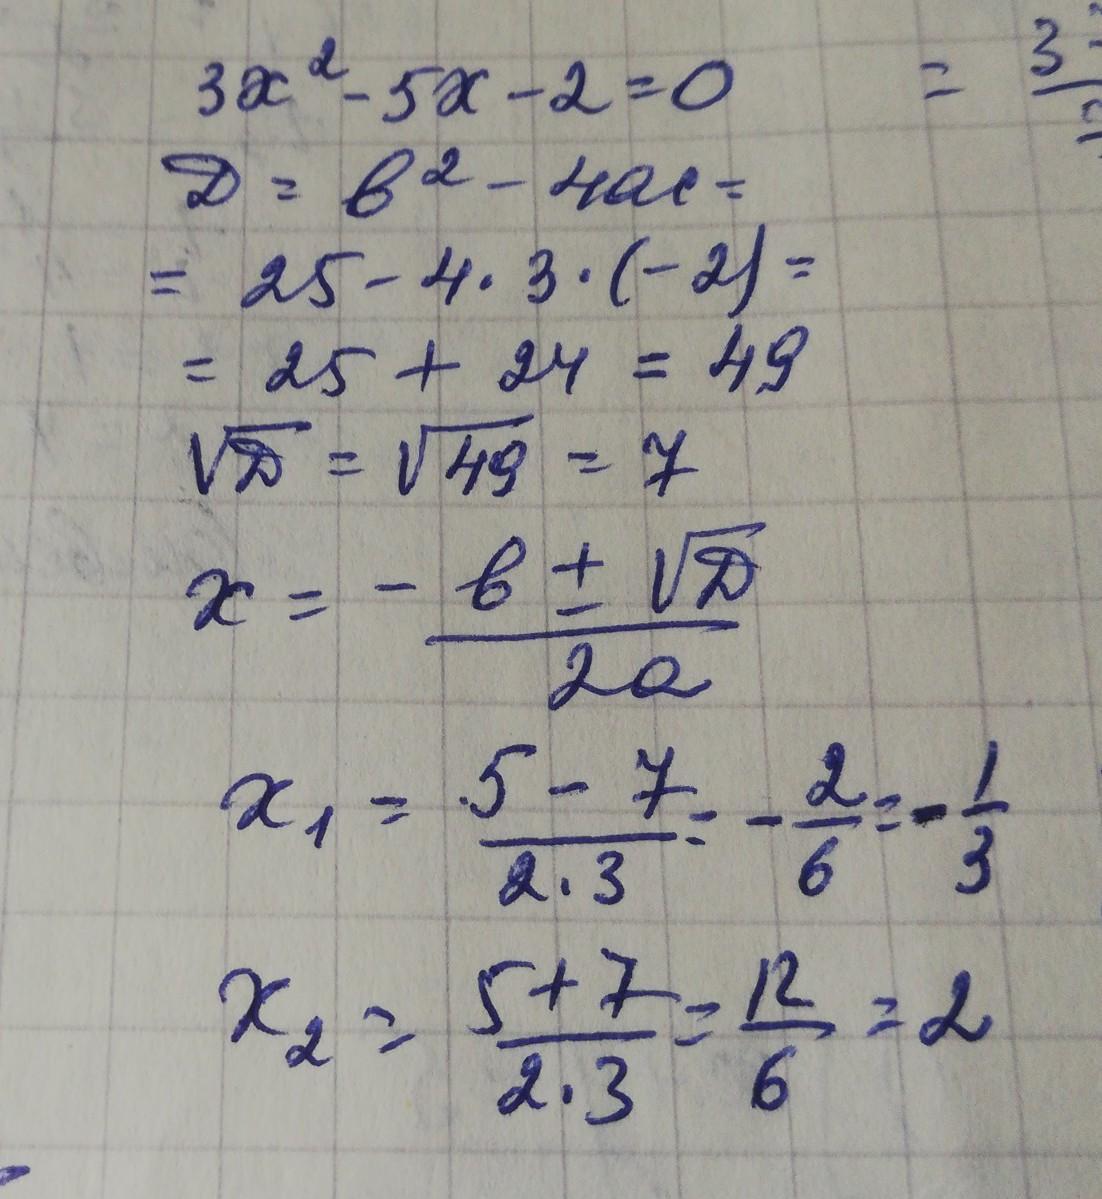 3x² - 5x - 2 = 0
D = b² - 4ac =
= 25 - 4 · 3 · (-2) =
= 25 + 24 = 49
√D = √49 = 7
x = -b ± √D / 2a
x₁ = 5 - 7 / 2 · 3 = - 2/6 = - 1/3
x₂ = 5 + 7 / 2 · 3 = 12/6 = 2
= 3